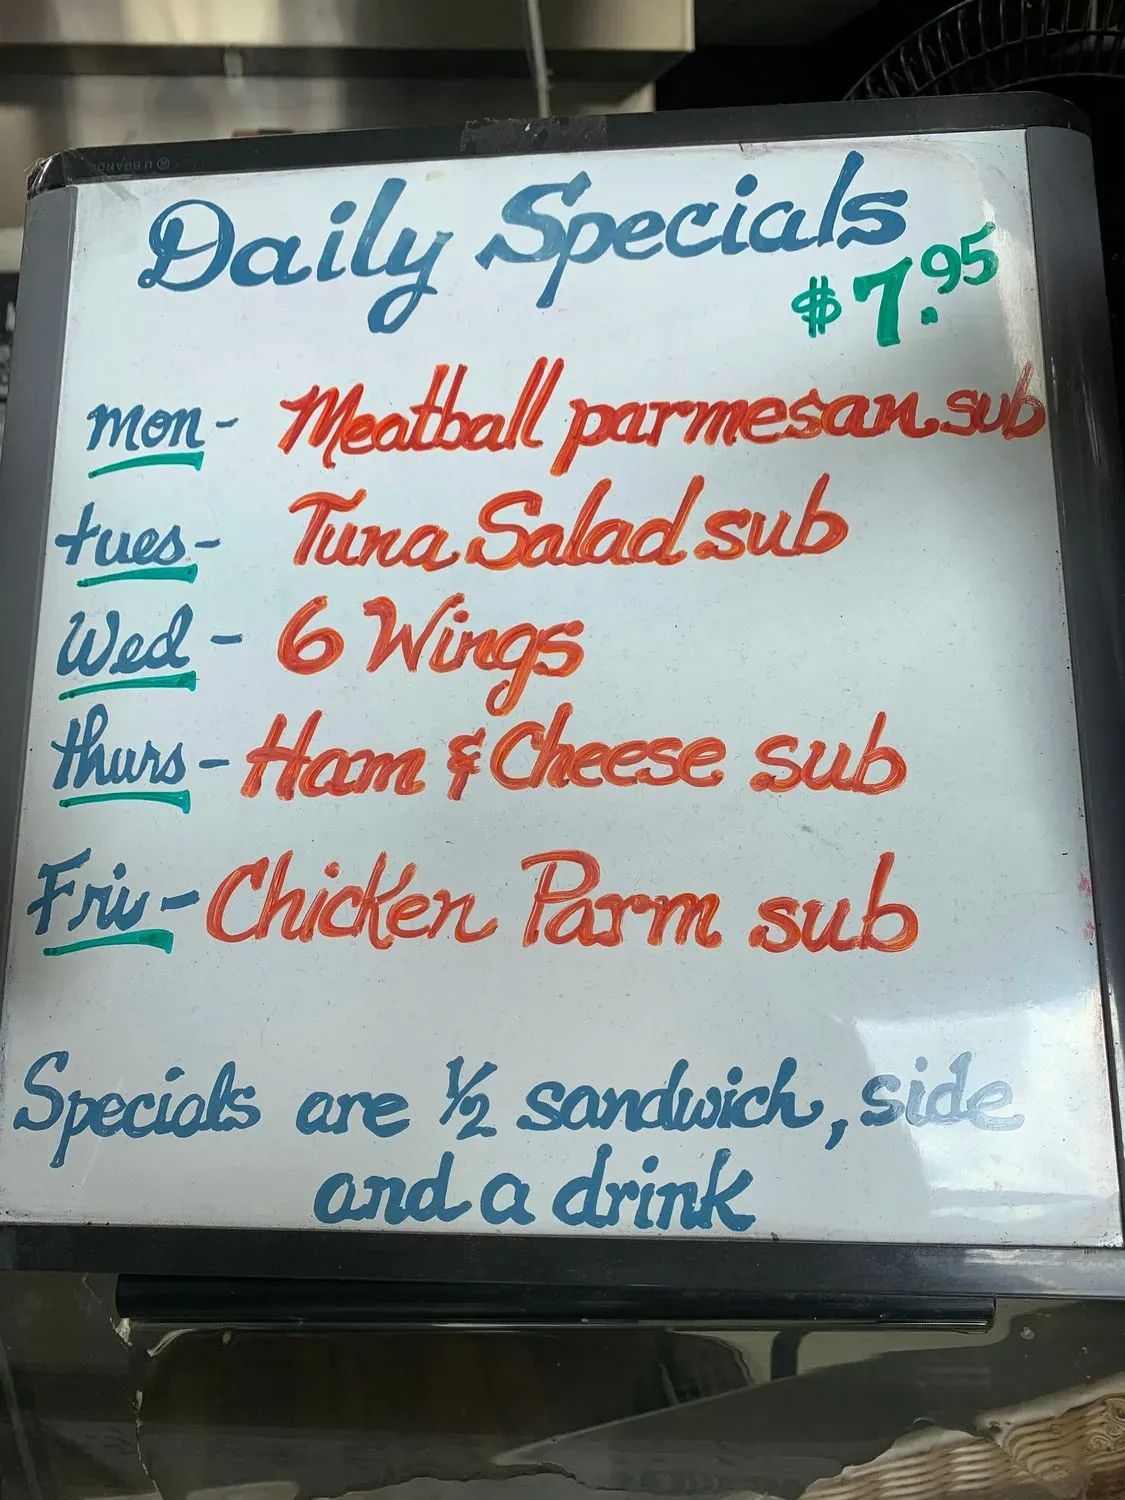 Daily Specials
$7.95
mon- Meatball parmesan sub
tues- Tuna Salad sub
Wed - 6 Wings
thurs- Ham & Cheese sub
Fri- Chicken Parm sub
Specials are 1/2 sandwich, side
and a drink